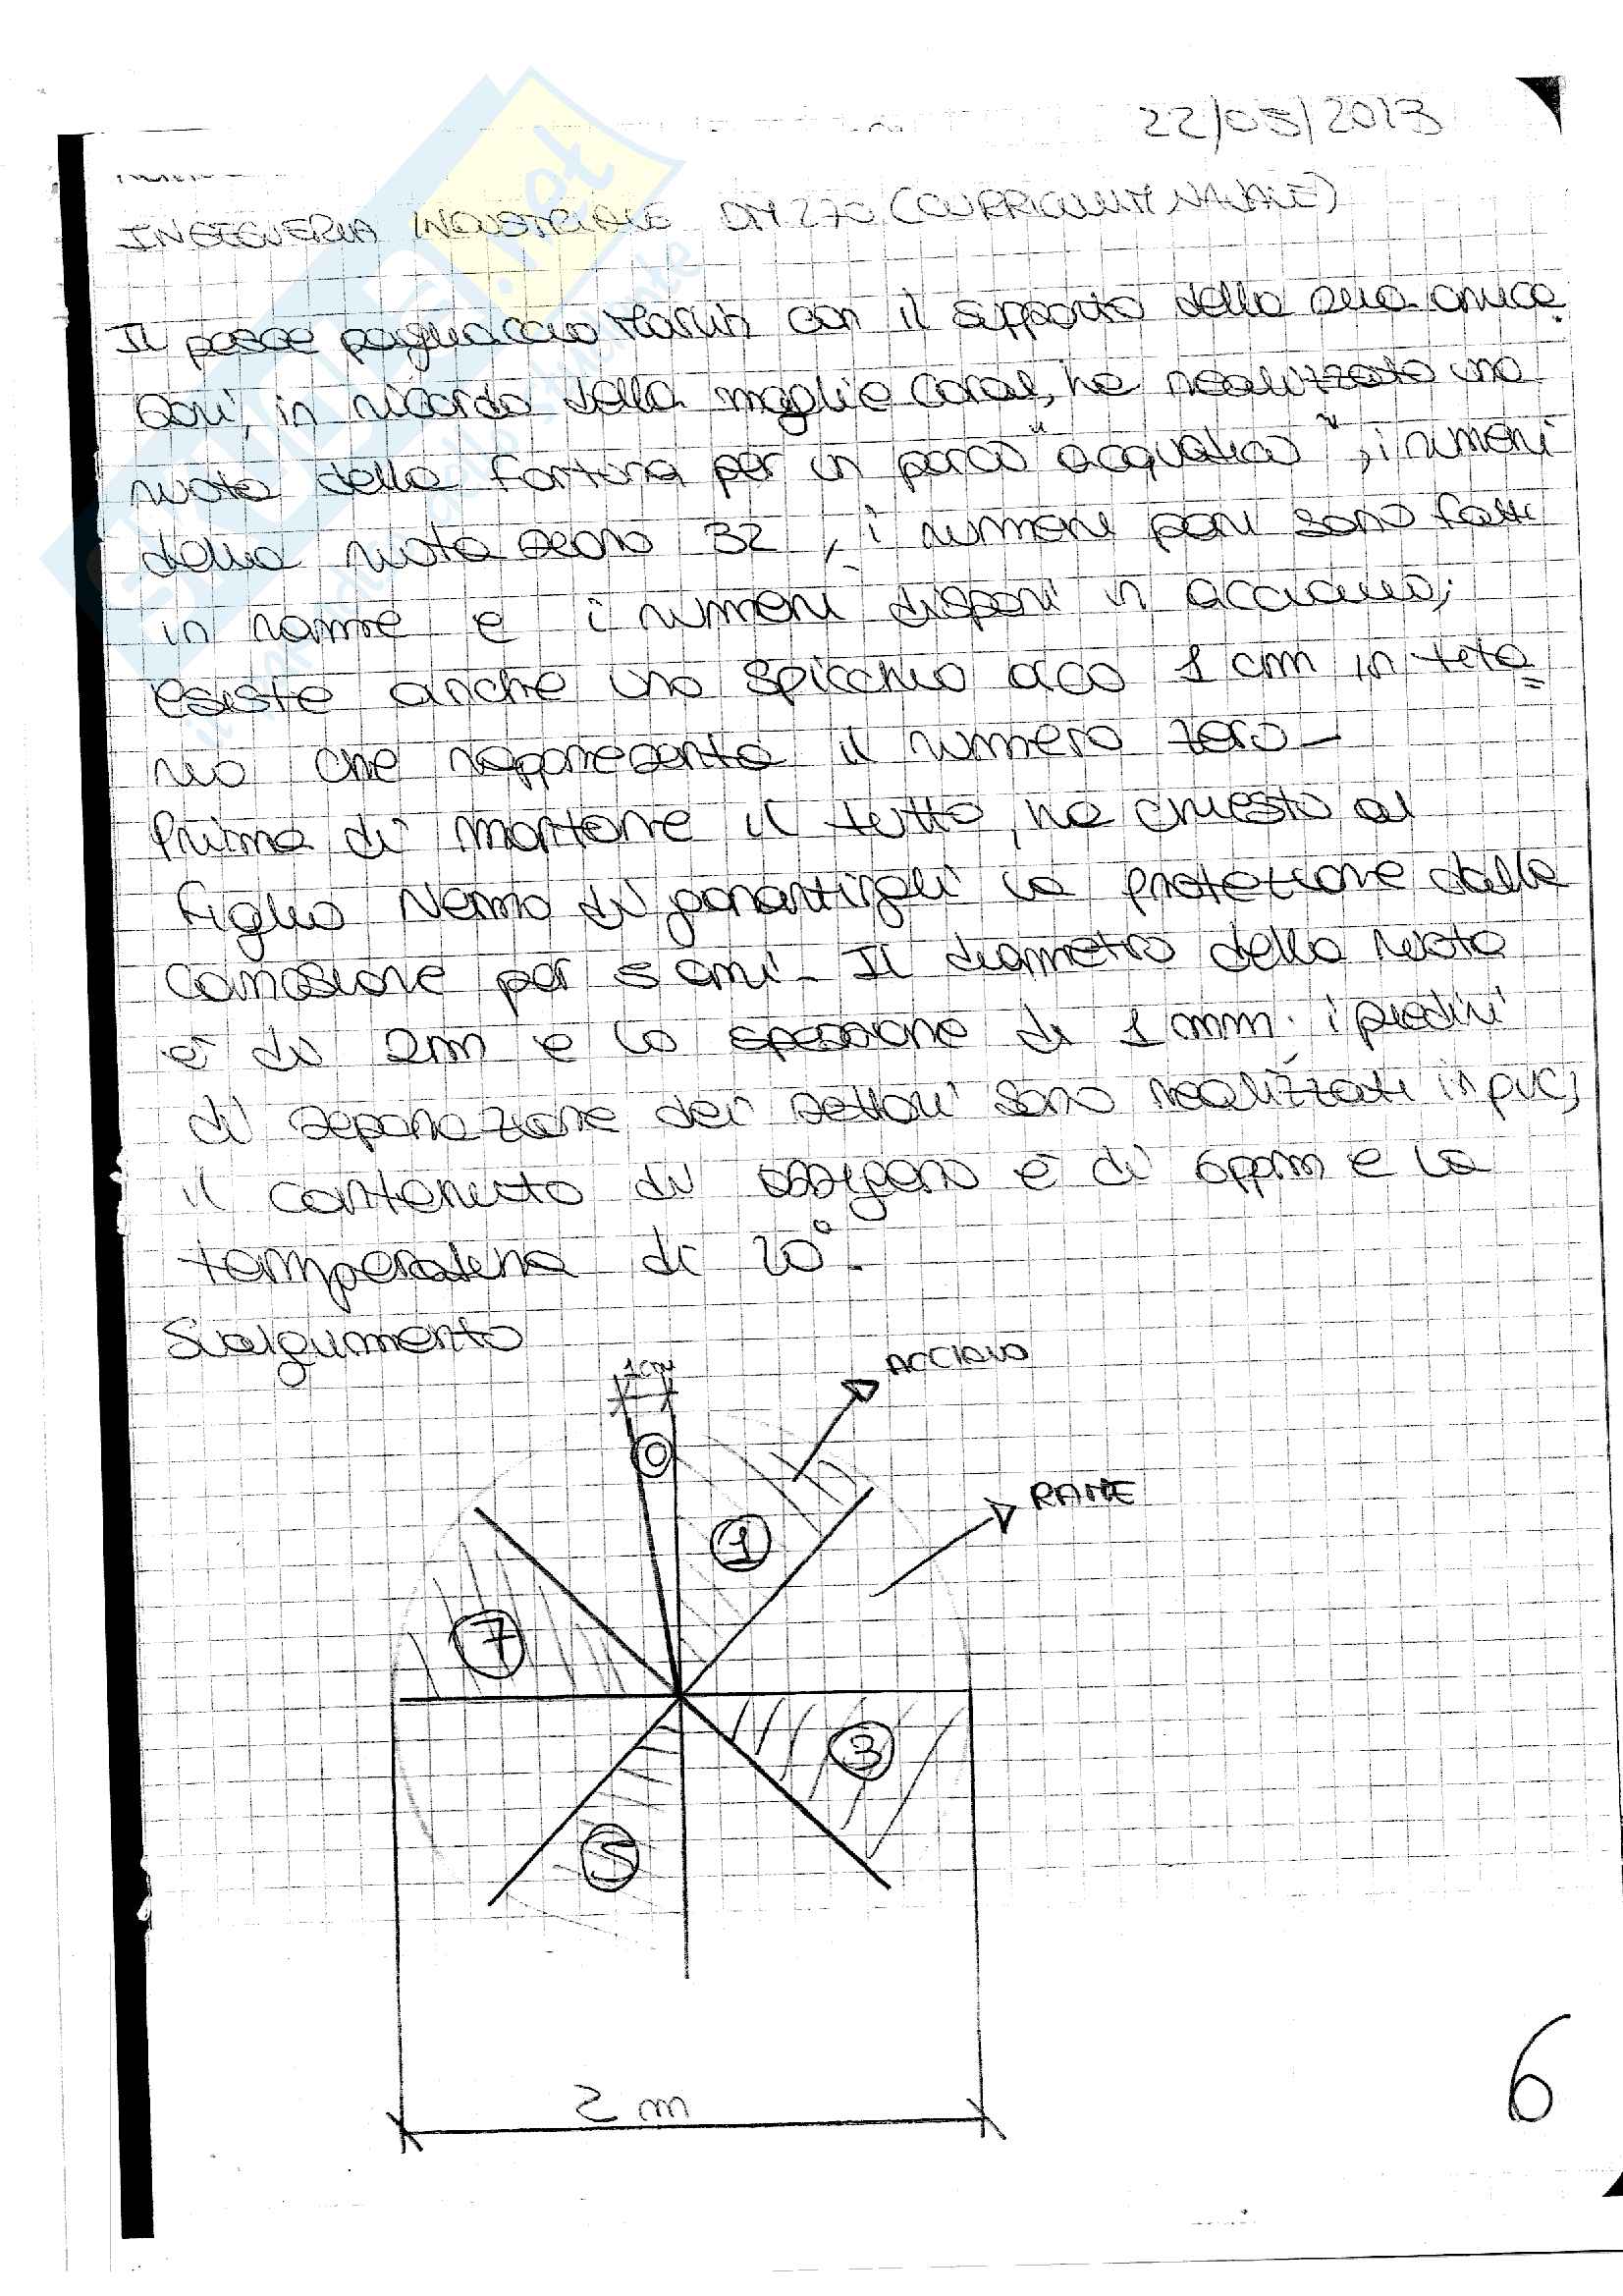 22/05/2013
INGEGNERIA INDUSTRIALE DM 270 (CURRICULUM NAVALE)
Il pesce pagliaccio Marlin con il supporto della sua amica
Dori, in ricordo della moglie Coral, ha realizzato una
ruota della fortuna per un parco "acquatico", i numeri
della ruota sono 32, i numeri pari sono fatti
in rame e i numeri dispari in acciaio;
esiste anche uno spicchio da 1 cm in tita=
nio che rappresenta il numero zero-
Prima di montare il tutto, ha chiesto al
figlio Nemo di garantirgli la protezione dalla
corrosione per 5 anni. Il diametro della ruota
è di 2m e lo spessore di 1 mm. i piedini
di separazione dei settori sono realizzati in pvc;
il contenuto di ossigeno è di 6ppm e la
temperatura di 20°.
Svolgimento
1cm
ACCIAIO
0
RAME
1
7
3
5
2 m
6